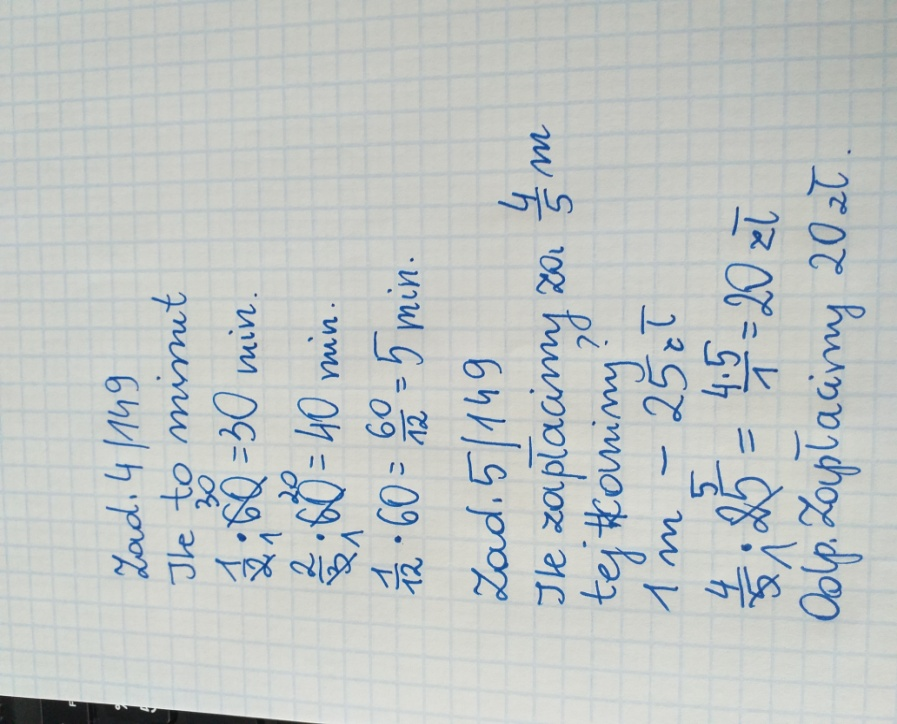 Zad. 4/149
Ile to minut
1/2 · 60 = 30 min.
2/3 · 60 = 40 min.
1/12 · 60 = 60/12 = 5 min.
Zad. 5/149
Ile zapłacimy za 4/5 m
tej tkaniny?
1 m - 25 zł
4/5 · 25 = 4·5/1 = 20 zł
Odp. Zapłacimy 20 zł.